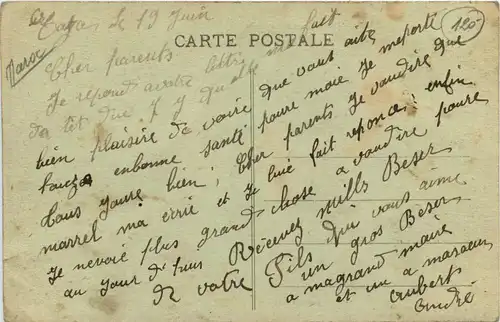 Maroc
Tazas le 19 Juin
CARTE POSTALE
120
Cher parents
Je repond avotre lettre
da lit que J y que elle me fait
bien plaisire de voire que vous aite
touzo enbonne santé poure moie Je meporte
tous Joure bien, Cher parents Je vaudire que
marrel ma ecrie et Je luié fait reponce; enfin
Je nevoie plus grand chose a vaudire poure
au Jour d'huis Recevez mills Beser
de votre Fils Qui vous aime
un gros Beser
a magrand maire
et un a masœur
Aubert
André